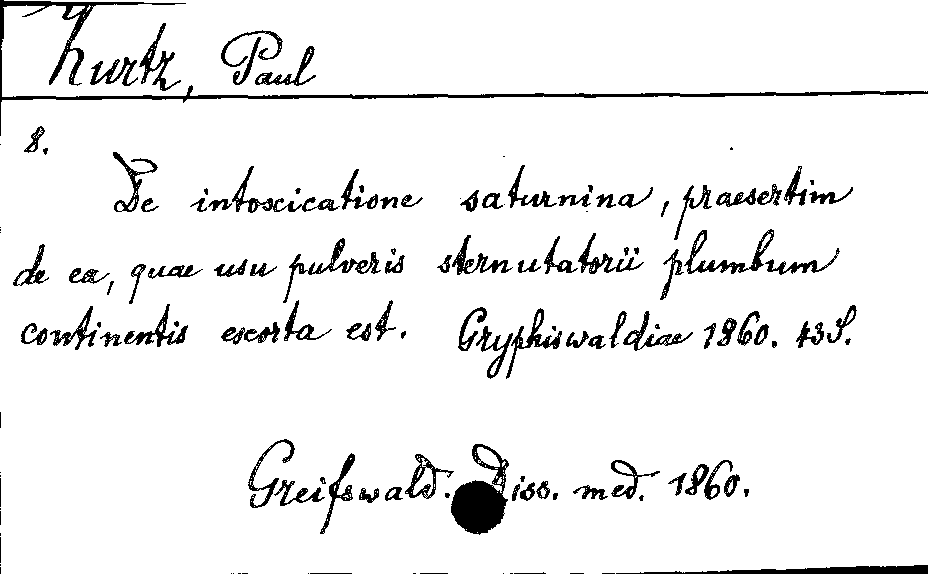 Kurtz, Paul
8.
De intoxicatione saturnina, praesertim
de ea, quae usu pulveris sternutatorii plumbum
continentis exorta est. Gryphiswaldiae 1860. 43 S.
Greifswald. Diss. med. 1860.